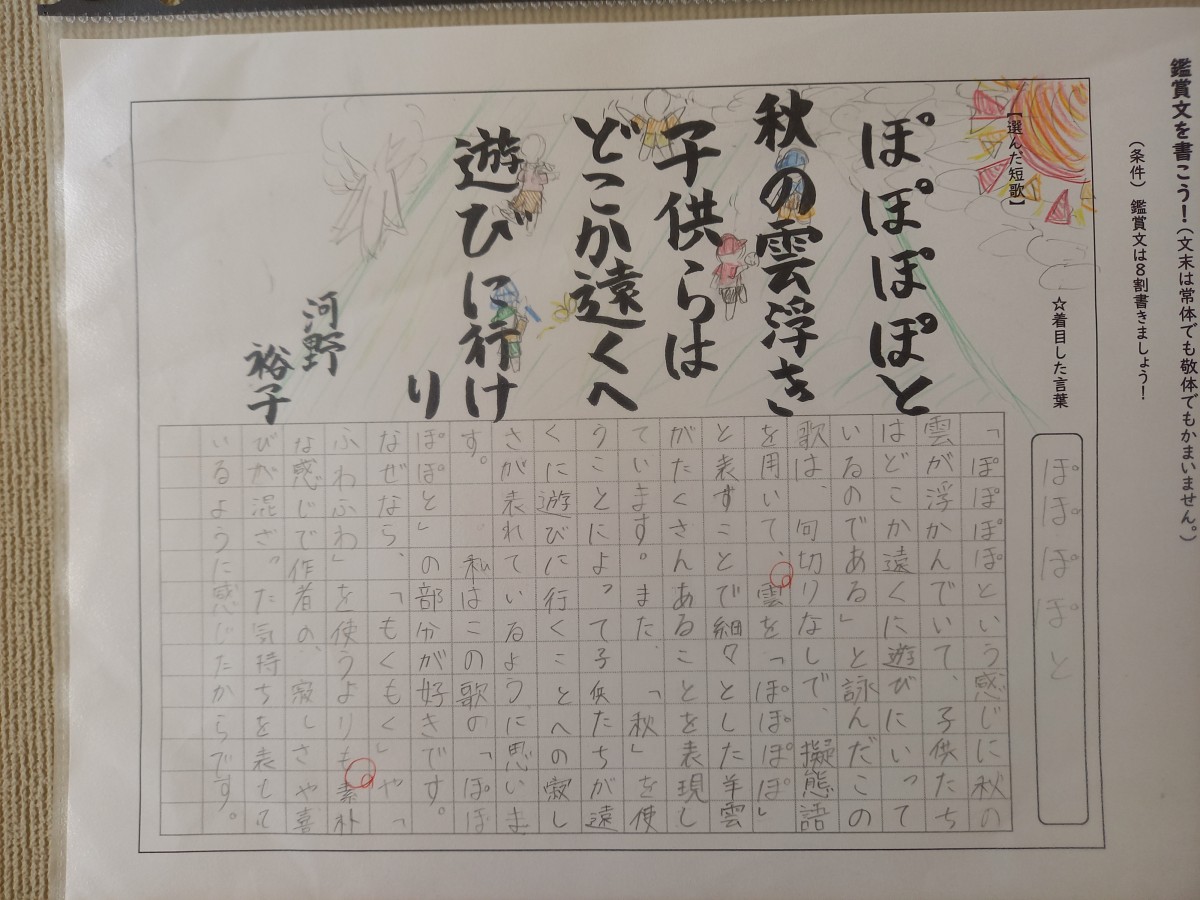 鑑賞文を書こう！（文末は常体でも敬体でもかまいません。）
（条件）鑑賞文は８割書きましょう！
【選んだ短歌】
ぽぽぽぽと
秋の雲浮き
子供らは
どこか遠くへ
遊びに行け
り
河野
裕子
☆着目した言葉
ぽぽぽぽと
「ぽぽぽぽという感じに秋の
雲が浮かんでいて、子供たち
はどこか遠くに遊びにいって
いるのである」と詠んだこの
歌は、句切りなしで、擬態語
を用いて、雲を「ぽぽぽぽ」
と表すことで細々とした羊雲
がたくさんあることを表現し
ています。また、「秋」を使
うことによって子供たちが遠
くに遊びに行くことへの寂し
さが表れているように思いま
す。　私はこの歌の「ぽぽ
ぽぽと」の部分が好きです。
なぜなら、「もくもく」や「
ふわふわ」を使うよりも素朴
な感じで作者の、寂しさや喜
びが混ざった気持ちを表して
いるように感じたからです。